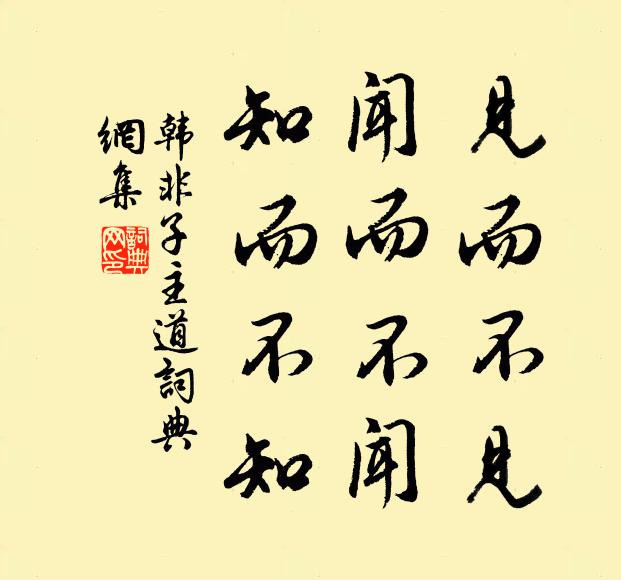 見而不見
聞而不聞
知而不知
韩非子主道詞典
網集
詞典
网印